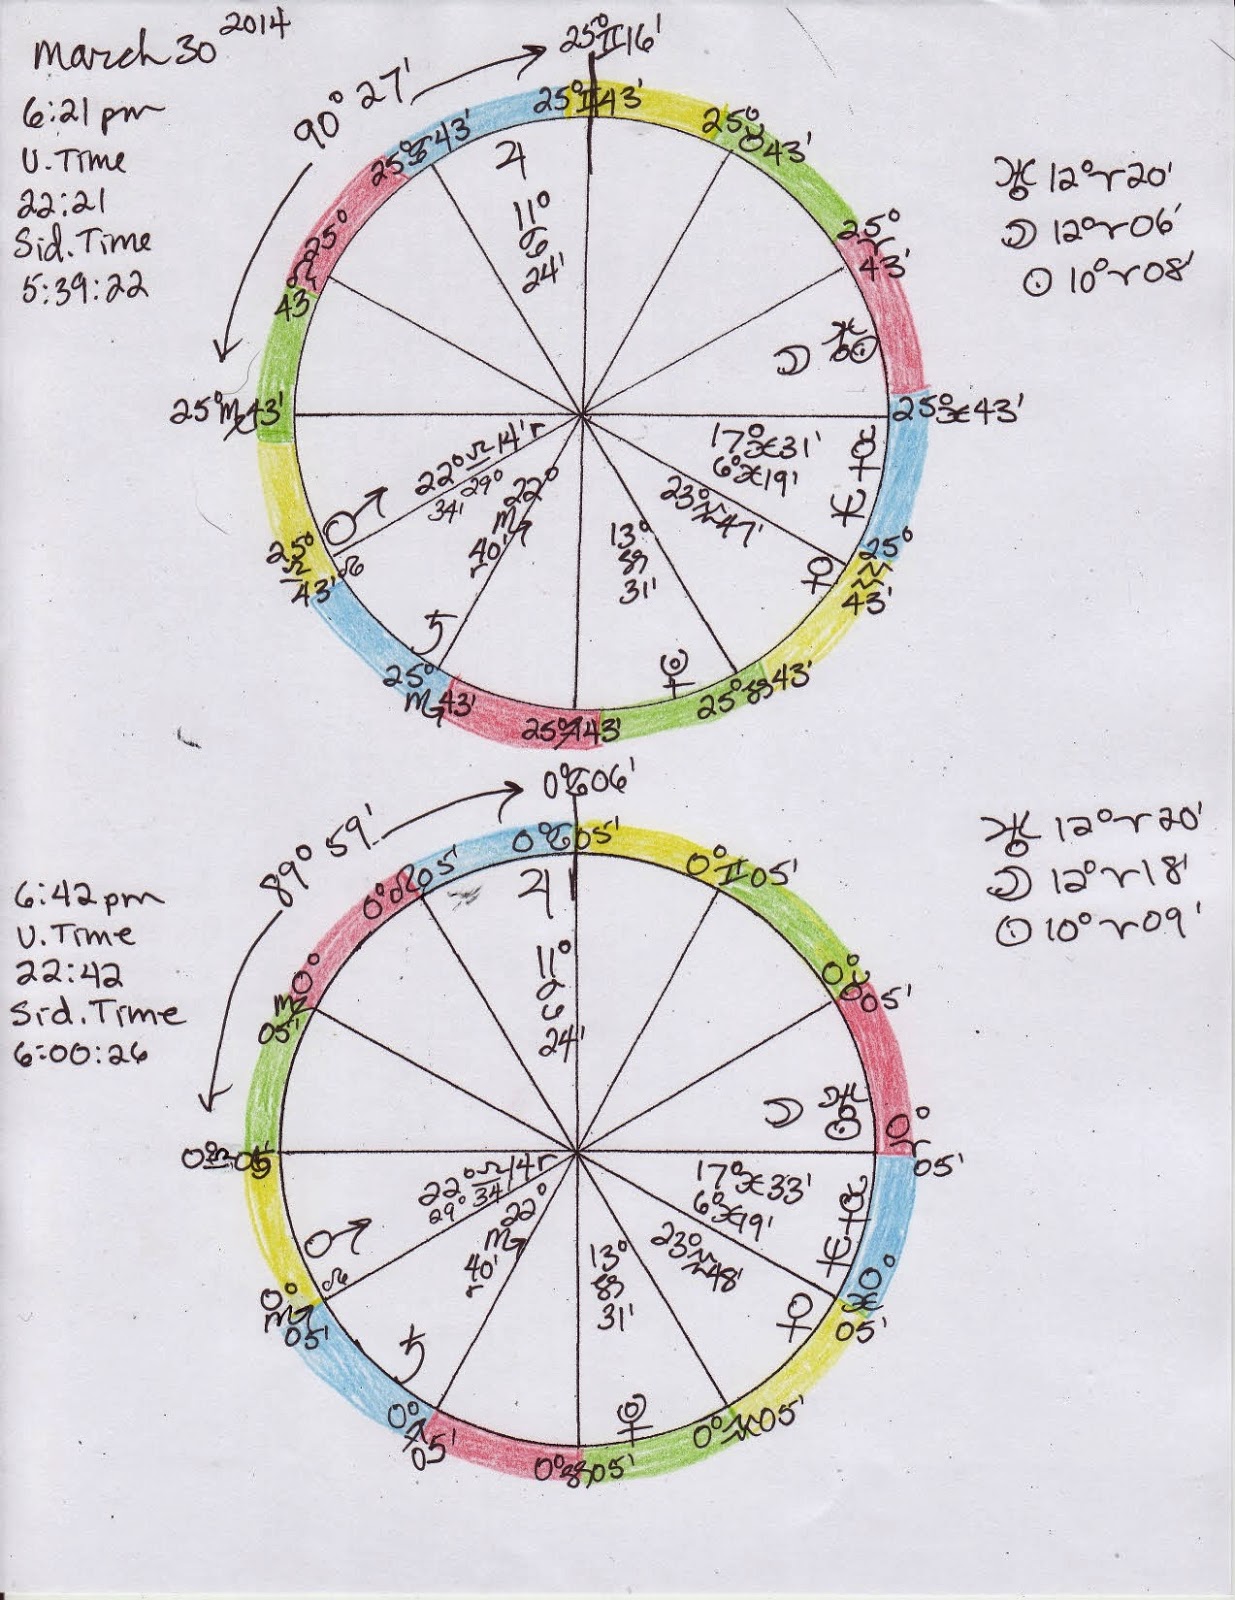 March 30 2014
6:21 pm
U. Time
22:21
Sid. Time
5:39:22
90° 27'
25°♊16'
25°♊43'
25°♉43'
25°♈43'
25°♓43'
25°♒43'
25°♑43'
25°♐43'
25°♏43'
25°♎43'
25°♍43'
25°♌43'
25°♋43'
♃
11°
♋
24'
☽ ♅ ☉
17°♓31' ☿
6°♓19' ♆
23°♒47' ♀
13°
♑
31'
♇
22°♎14'r ♂
29°
34' ☊
22°
♏
40'
r
♄
♅ 12°♈20'
☽ 12°♈06'
☉ 10°♈08'
6:42 pm
U. Time
22:42
Sid. Time
6:00:26
89° 59'
0°♋06'
0°♋05'
0°♊05'
0°♉05'
0°♈05'
0°♓05'
0°♒05'
0°♑05'
0°♐05'
0°♏05'
0°♎05'
0°♍05'
0°♌05'
♃
11°
♋
24'
☽ ♅ ☉
17°♓33' ☿
6°♓19' ♆
23°♒48' ♀
13°
♑
31'
♇
22°♎14r ♂
29° 34' ☊
22°
♏
40'
r
♄
♅ 12°♈20'
☽ 12°♈18'
☉ 10°♈09'